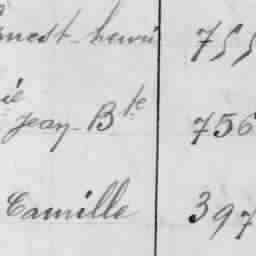 rnest-henri 755
ie
Jean-Bte 756
Camille 397